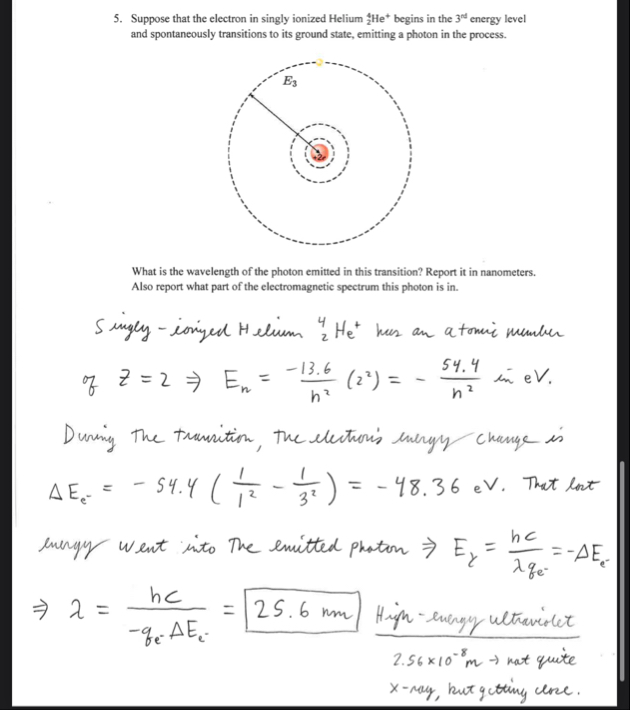 5. Suppose that the electron in singly ionized Helium ⁴₂He⁺ begins in the 3ʳᵈ energy level
and spontaneously transitions to its ground state, emitting a photon in the process.
E₃
What is the wavelength of the photon emitted in this transition? Report it in nanometers.
Also report what part of the electromagnetic spectrum this photon is in.
Singly-ionized Helium ⁴₂He⁺ has an atomic number
of Z = 2 ⇒ Eₙ = -13.6/n² (2²) = - 54.4/n² in eV.
During the transition, the electron's energy change is
ΔEₑ₋ = - 54.4 (1/1² - 1/3²) = -48.36 eV. That lost
energy went into the emitted photon ⇒ Eᵧ = hc/λqₑ₋ = -ΔEₑ₋
⇒ λ = hc/-qₑ₋ΔEₑ₋ = 25.6 nm High-energy ultraviolet
2.56 x 10⁻⁸ m → not quite
x-ray, but getting close.